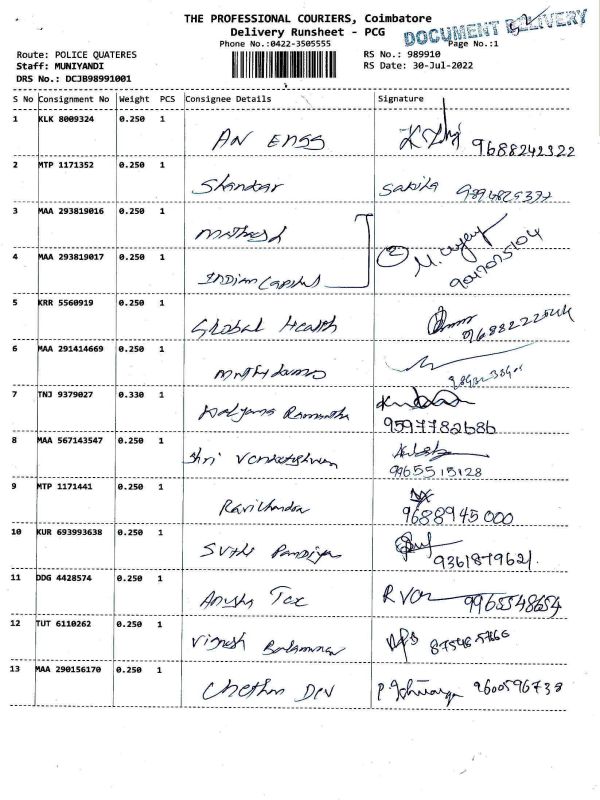 THE PROFESSIONAL COURIERS, Coimbatore
Delivery Runsheet - PCG
DOCUMENT DELIVERY
Phone No.:0422-3505555
Page No.:1
Route: POLICE QUATERES
RS No.: 989910
Staff: MUNIYANDI
RS Date: 30-Jul-2022
DRS No.: DCJB98991001
S No Consignment No Weight PCS Consignee Details Signature
1 KLK 8009324 0.250 1
AN ENGG 9688242322
2 MTP 1171352 0.250 1
Shankar Sabita
3 MAA 293819016 0.250 1
4 MAA 293819017 0.250 1
Indian Capital 2
5 KRR 5560919 0.250 1
Global Health
6 MAA 291414669 0.250 1
7 TNJ 9379027 0.330 1
Kalyana
9597782686
8 MAA 567143547 0.250 1
Shri
9965515128
9 MTP 1171441 0.250 1
Ravichandra
9688945000
10 KUR 693993638 0.250 1
9361879621.
11 DDG 4428574 0.250 1
Tax 9965548654
12 TUT 6110262 0.250 1
Vignesh
13 MAA 290156170 0.250 1
Chethan Dev 9600596738